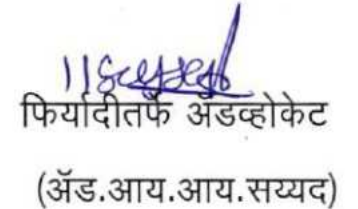 फिर्यादीतर्फे अॅडव्होकेट
(अॅड.आय.आय.सय्यद)